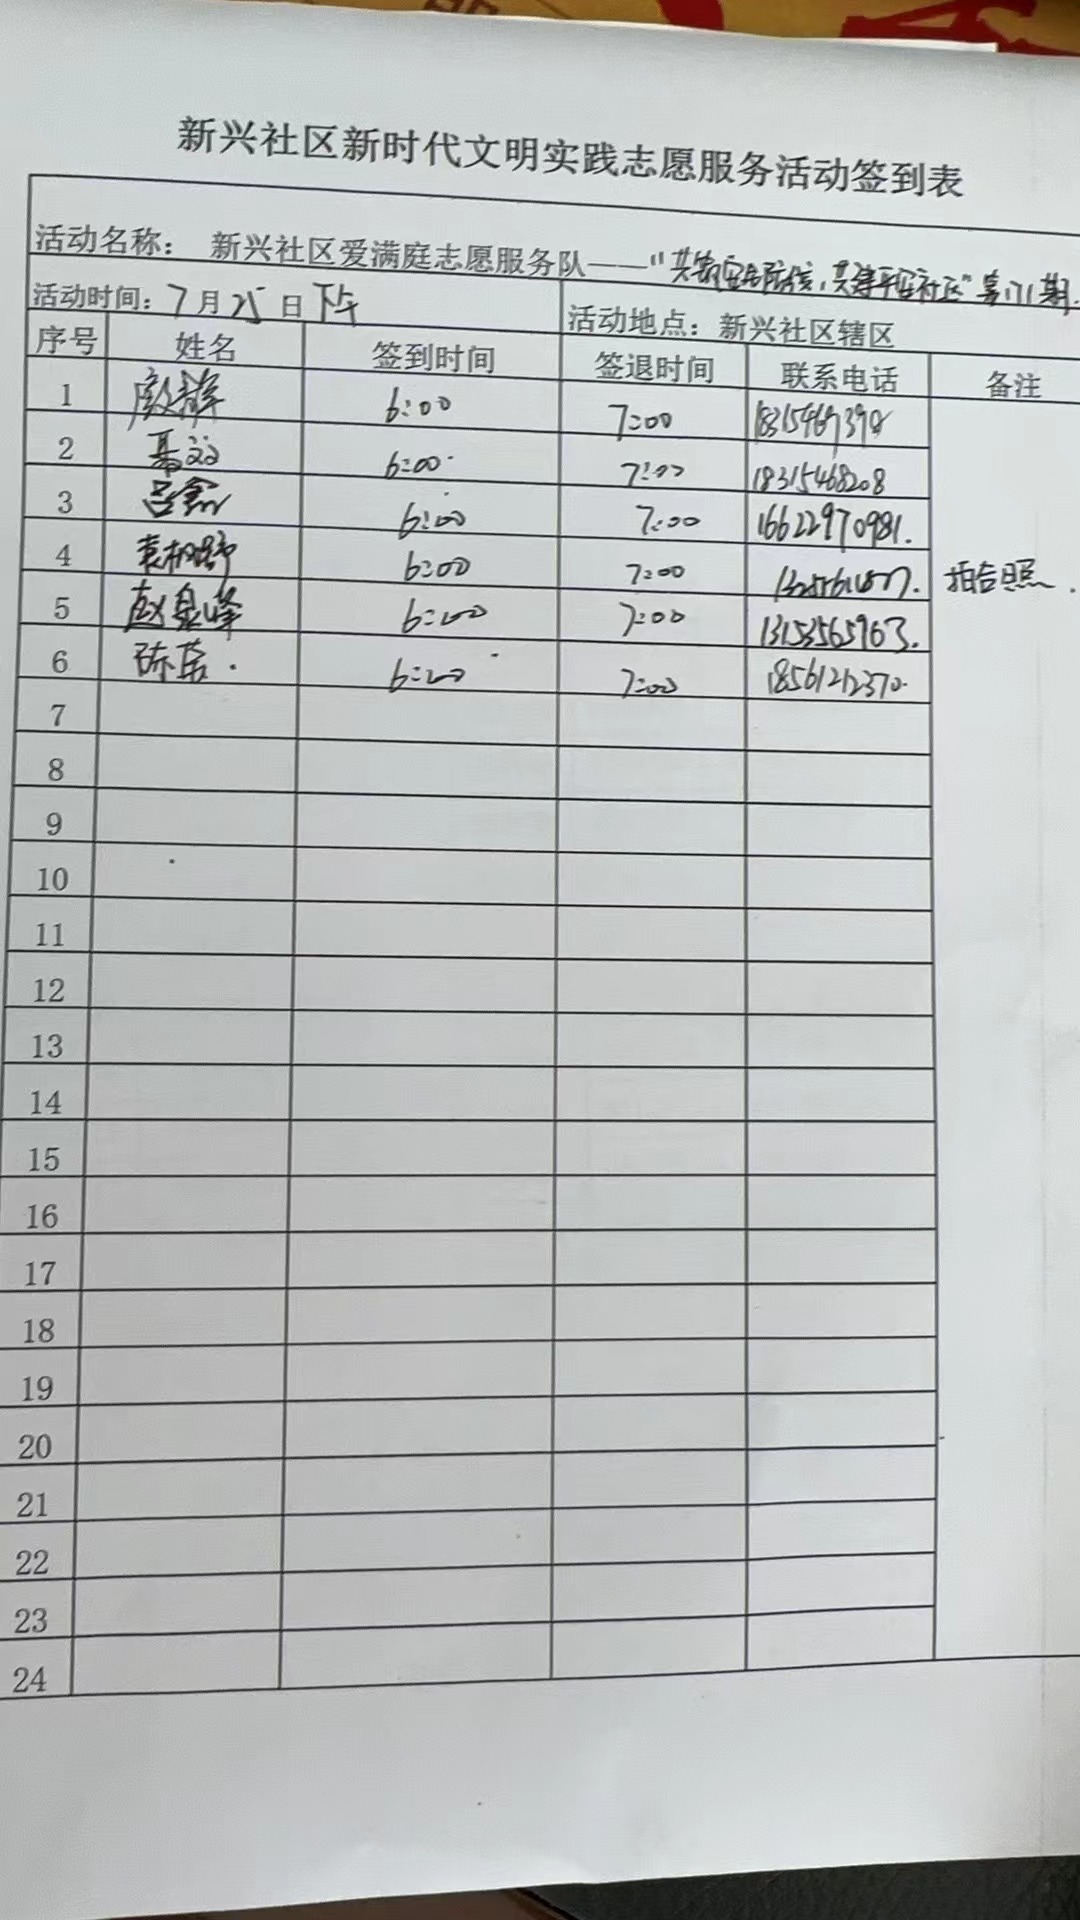 新兴社区新时代文明实践志愿服务活动签到表
活动名称： 新兴社区爱满庭志愿服务队——“共建平安社区”第171期.
活动时间：7月25日下午 活动地点：新兴社区辖区
序号 姓名 签到时间 签退时间 联系电话 备注
1 6:00 7:00
2 6:00 7:00 18315468208
3 吕鑫 6:00 7:00 16622970981.
4 6:00 7:00 拍合照.
5 赵泉峰 6:00 7:00 13153565963.
6 陈蕾. 6:00 7:00 18561212370.
7
8
9
10
11
12
13
14
15
16
17
18
19
20
21
22
23
24